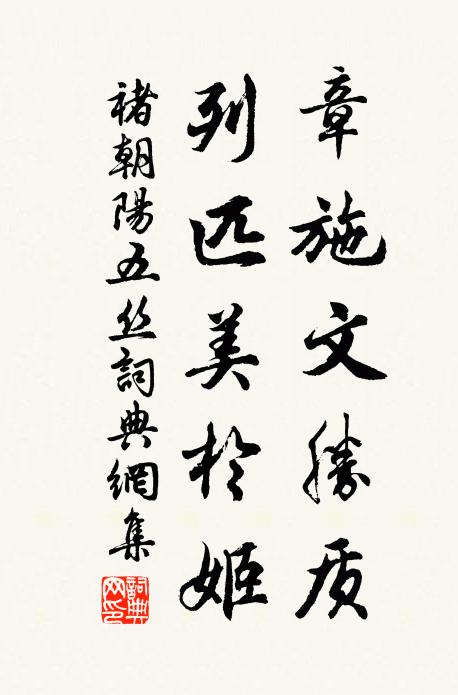 章施文勝质
列匹美於姬
褚朝陽五丝詞典網集
詞典网印